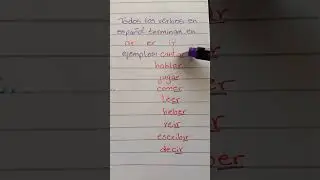 Todos los verbos en
español terminan en
ar er ir
ejemplos: cantar
hablar
jugar
comer
leer
beber
reir
escribir
decir